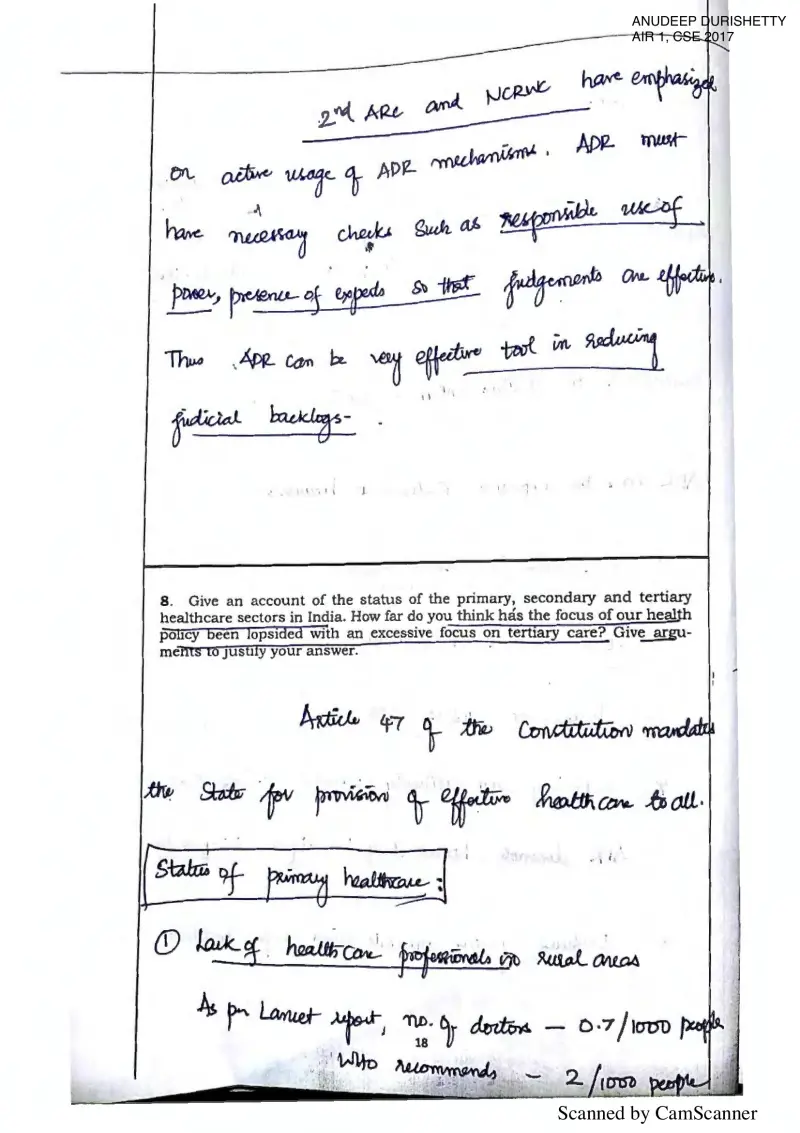 ANUDEEP DURISHETTY
AIR 1, CSE 2017
2nd ARC and NCRWC have emphasized
on active usage of ADR mechanisms. ADR must
have necessary checks such as responsible use of
power, presence of experts so that judgements are effective.
Thus ADR can be very effective tool in reducing
judicial backlogs-
8. Give an account of the status of the primary, secondary and tertiary
healthcare sectors in India. How far do you think has the focus of our health
policy been lopsided with an excessive focus on tertiary care? Give argu-
ments to justify your answer.
Article 47 of the Constitution mandates
the State for provision of effective healthcare to all.
Status of primary healthcare :
① Lack of healthcare professionals in rural areas
As per Lancet report, no. of doctors – 0.7/1000 people
18
WHO recommends – 2/1000 people
Scanned by CamScanner